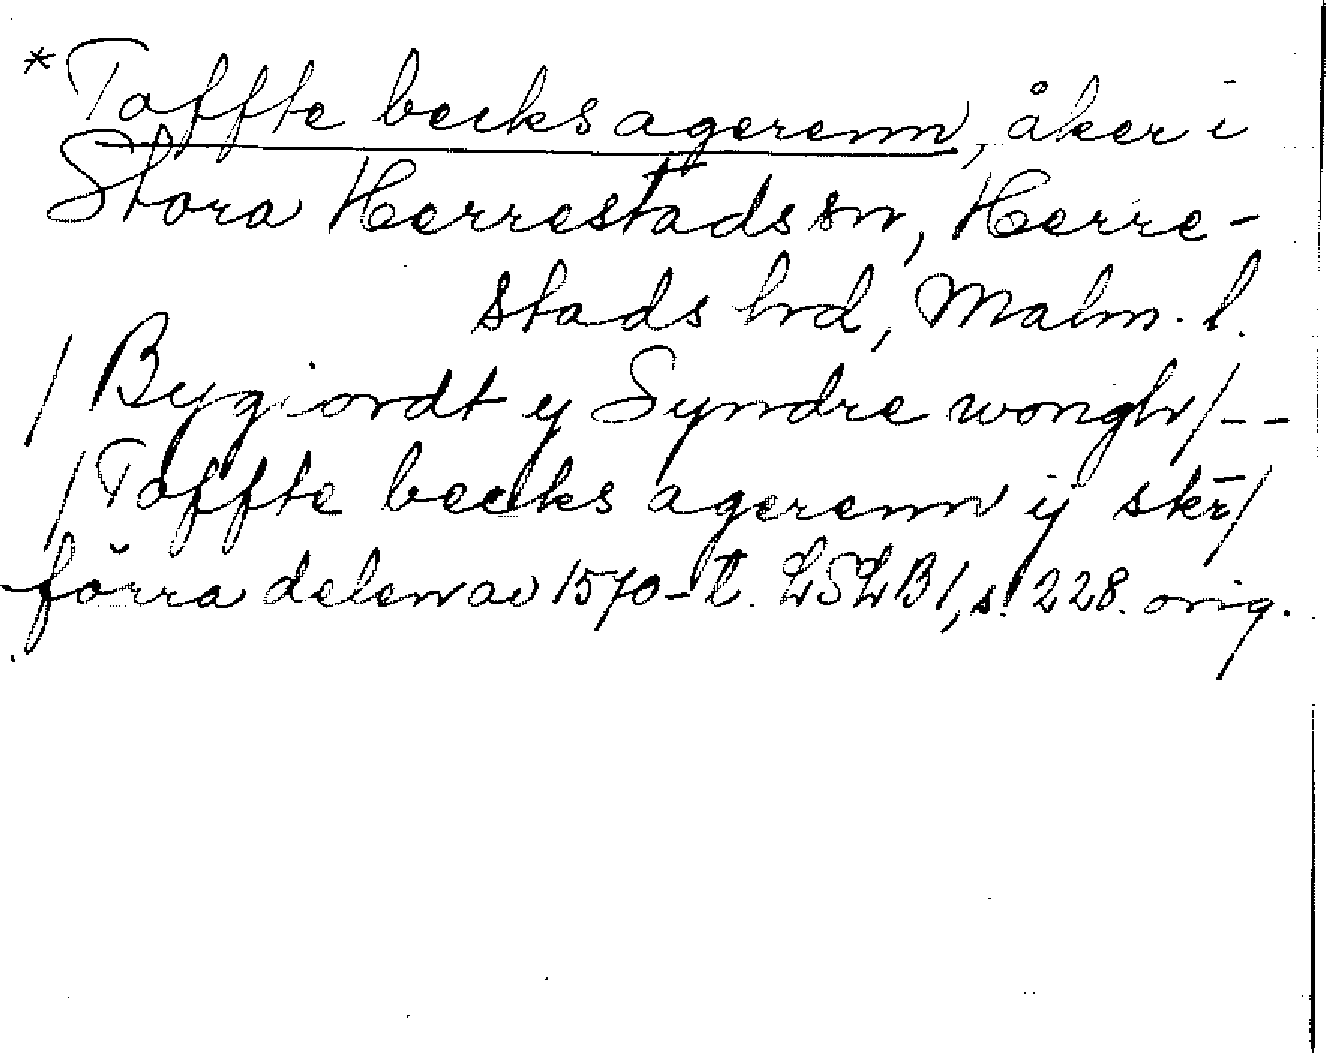 *Toffte becks agerenn, åker i
Stora Herrestads sn, Herre-
stads hrd, Malm. l.
/Bygiordt y Syndre wongh/--
/Toffte becks agerenn ij skr̄/
förra delen av 1570-t. LSLB1, s. 228. orig.